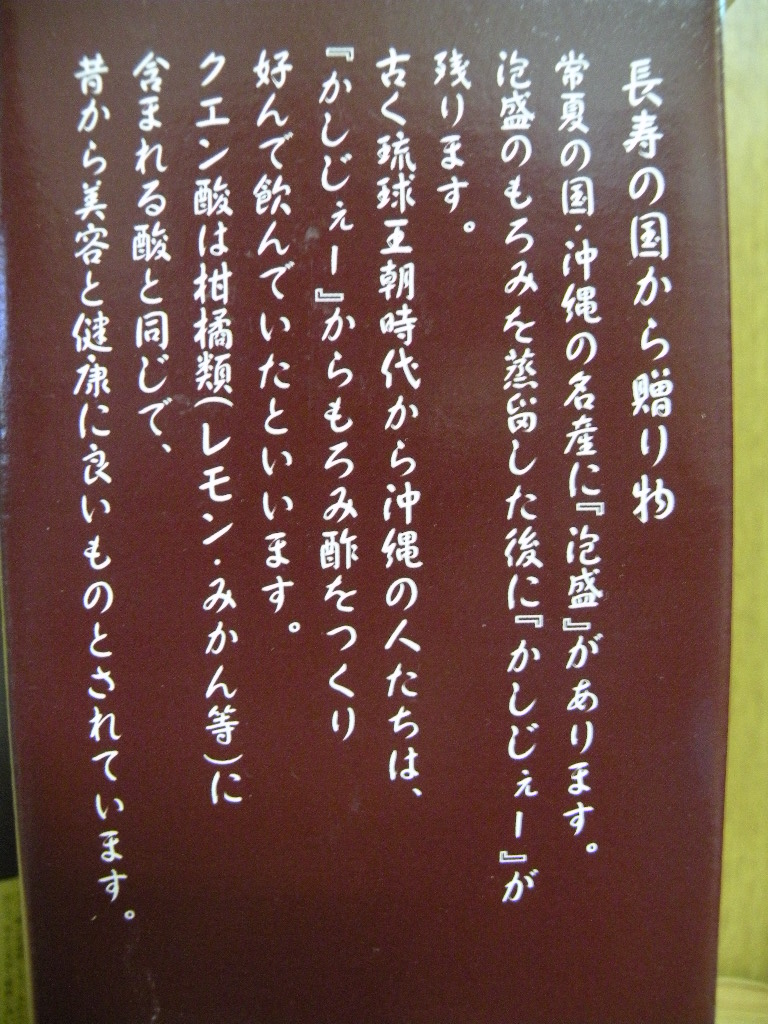 長寿の国から贈り物
常夏の国・沖縄の名産に『泡盛』があります。
泡盛のもろみを蒸留した後に『かしじぇー』が
残ります。
古く琉球王朝時代から沖縄の人たちは、
『かしじぇー』からもろみ酢をつくり
好んで飲んでいたといいます。
クエン酸は柑橘類(レモン・みかん等)に
含まれる酸と同じで、
昔から美容と健康に良いものとされています。